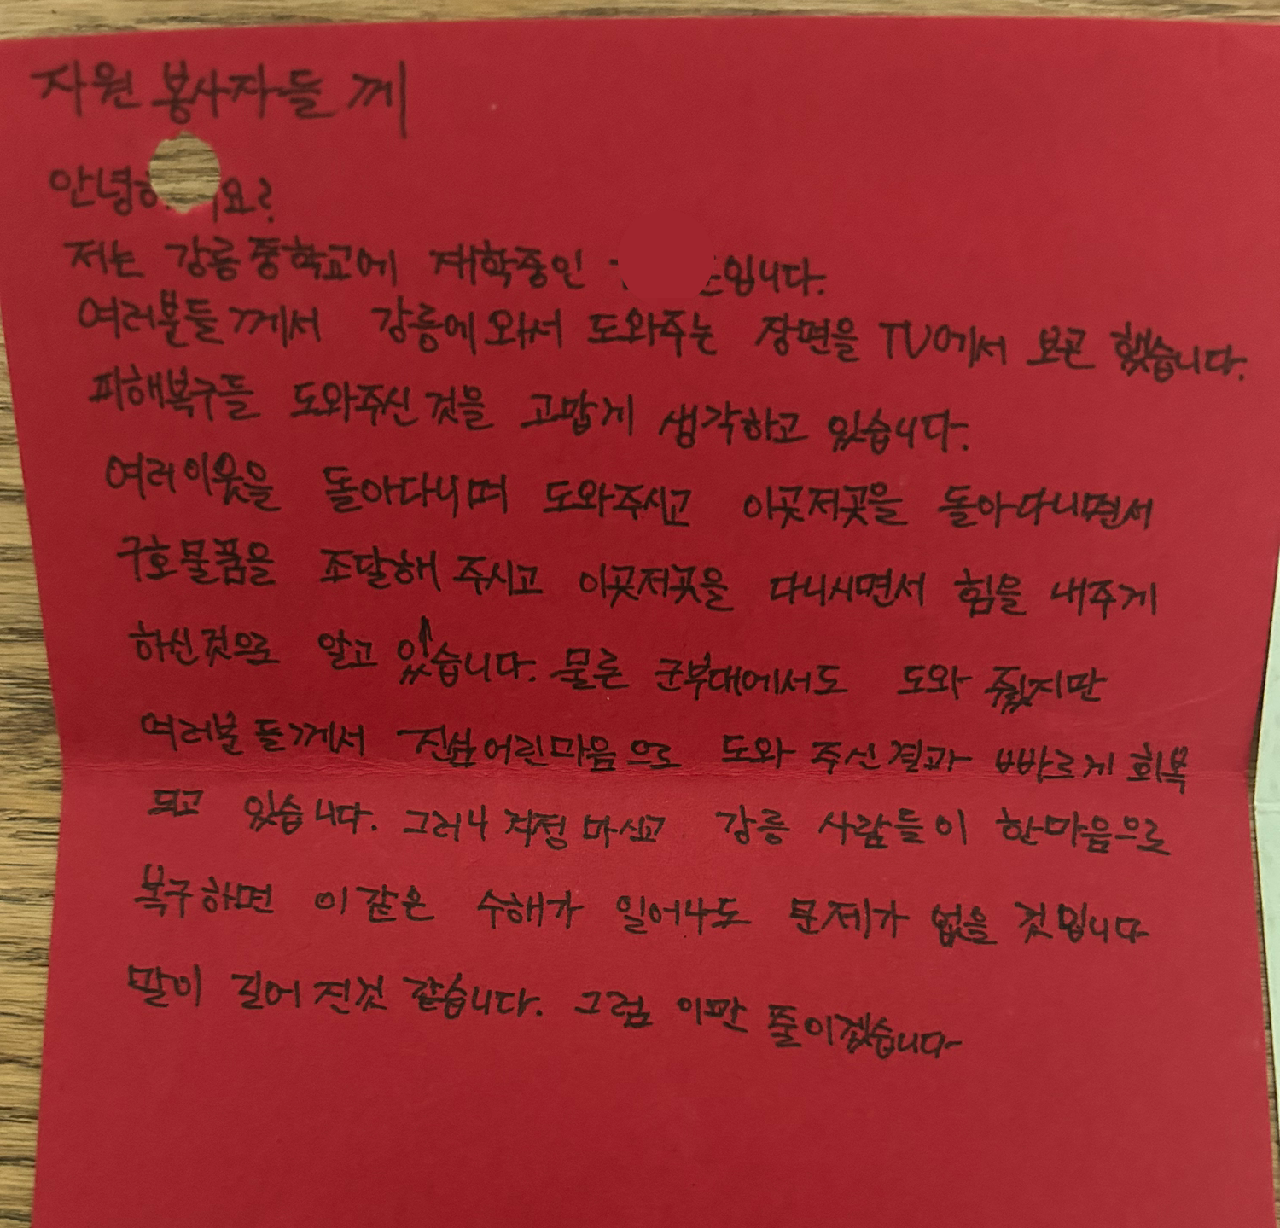 자원 봉사자들 께
안녕하 요?
저는 강릉중학교에 재학중인 입니다.
여러분들께서 강릉에 와서 도와주는 장면을 TV에서 보곤 했습니다.
피해복구들 도와주신 것을 고맙게 생각하고 있습니다.
여러이웃을 돌아다니며 도와주시고 이곳저곳을 돌아다니면서
구호물품을 조달해 주시고 이곳저곳을 다니시면서 힘을 내주게
하신것으로 알고 있습니다. 물론 군부대에서도 도와 줬지만
여러분들께서 진심어린마음으로 도와 주신결과 빠르게 회복
되고 있습니다. 그러니 걱정 마시고 강릉 사람들이 한마음으로
복구하면 이같은 수해가 일어나도 문제가 없을 것입니다
말이 길어 진것 같습니다. 그럼 이만 줄이겠습니다